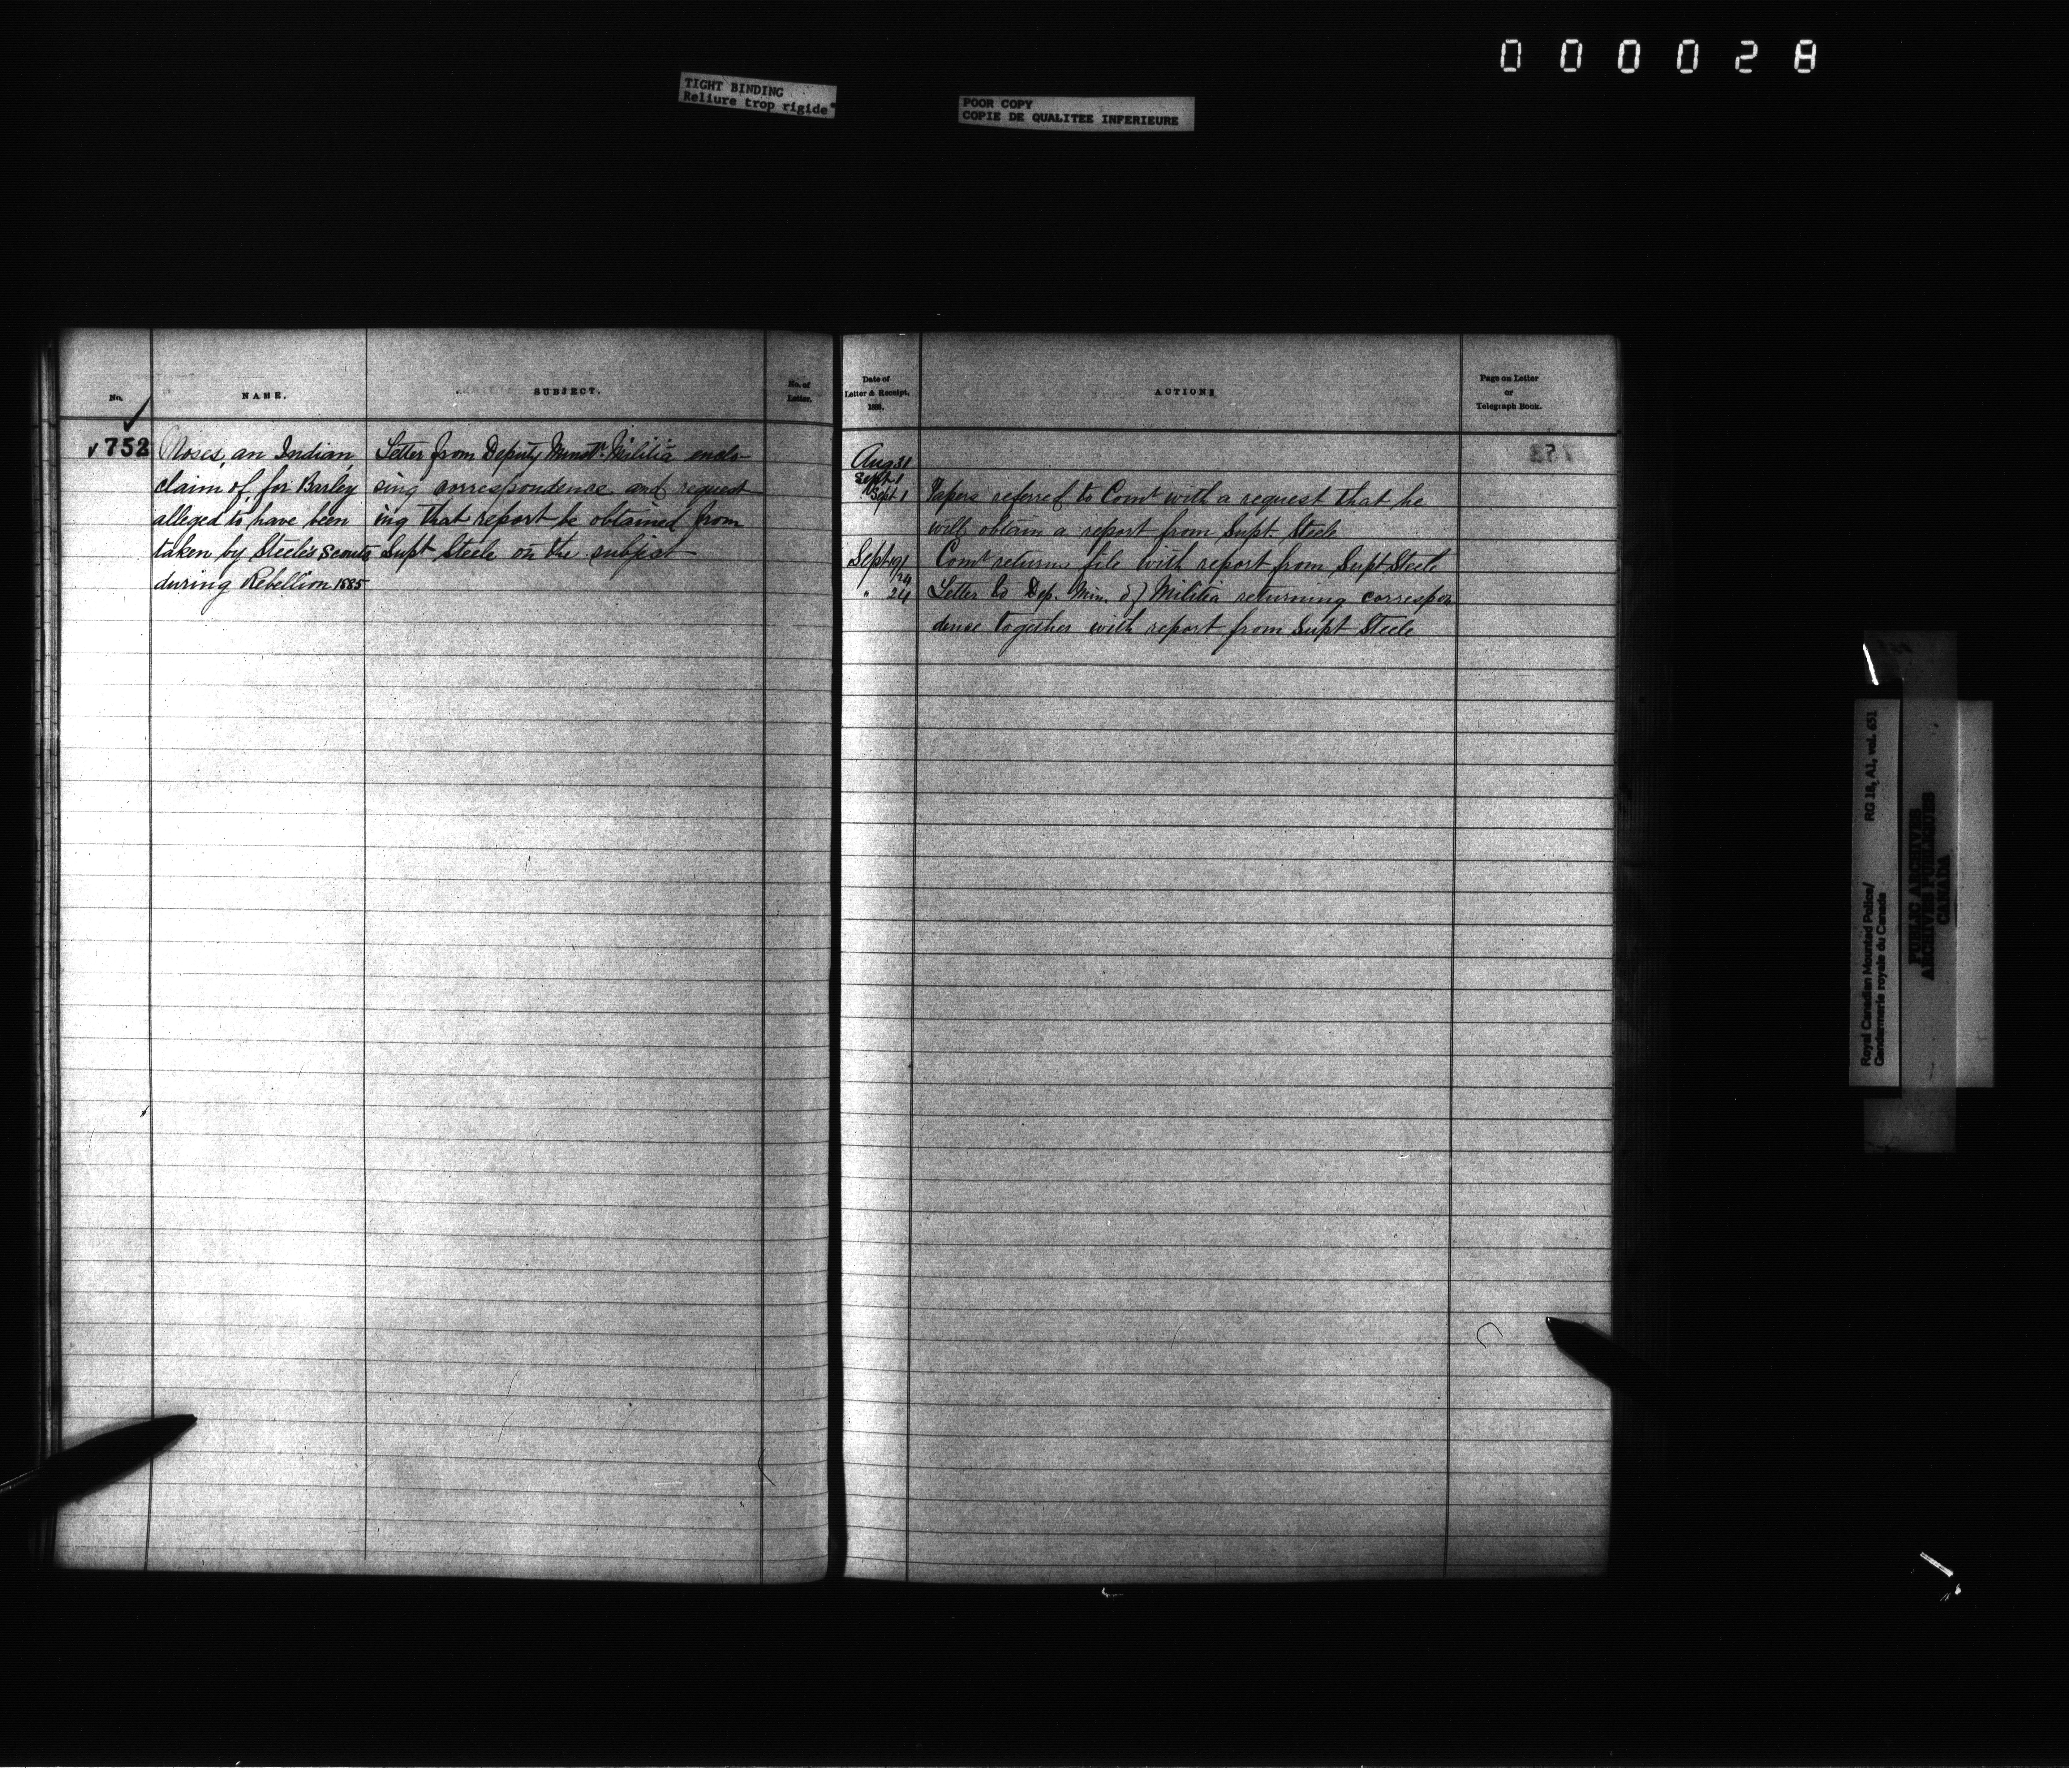 0 0 0 0 2 8
TIGHT BINDING
Reliure trop rigide
POOR COPY
COPIE DE QUALITEE INFERIEURE
No.
NAME.
SUBJECT.
No. of
Letter.
✓752
Moses, an Indian,
claim of, for Barley
alleged to have been
taken by Steele's Scouts
during Rebellion 1885
Letter from Deputy Minstr. Militia enclo-
sing correspondence and request
ing that report be obtained from
Supt Steele on the subject
Date of
Letter & Receipt,
188
ACTION
Page on Letter
or
Telegraph Book.
Aug 31
Sept 1
Sept 1 Papers referred to Comr with a request that he
will obtain a report from Supt. Steele
Sept 19/24 Comr returns file with report from Supt Steele
" 24 Letter to Dep. Min. of Militia returning correspon
dence together with report from Supt Steele
Royal Canadian Mounted Police/
Gendarmerie royale du Canada
RG 18, A1, vol. 651
PUBLIC ARCHIVES
ARCHIVES PUBLIQUES
CANADA